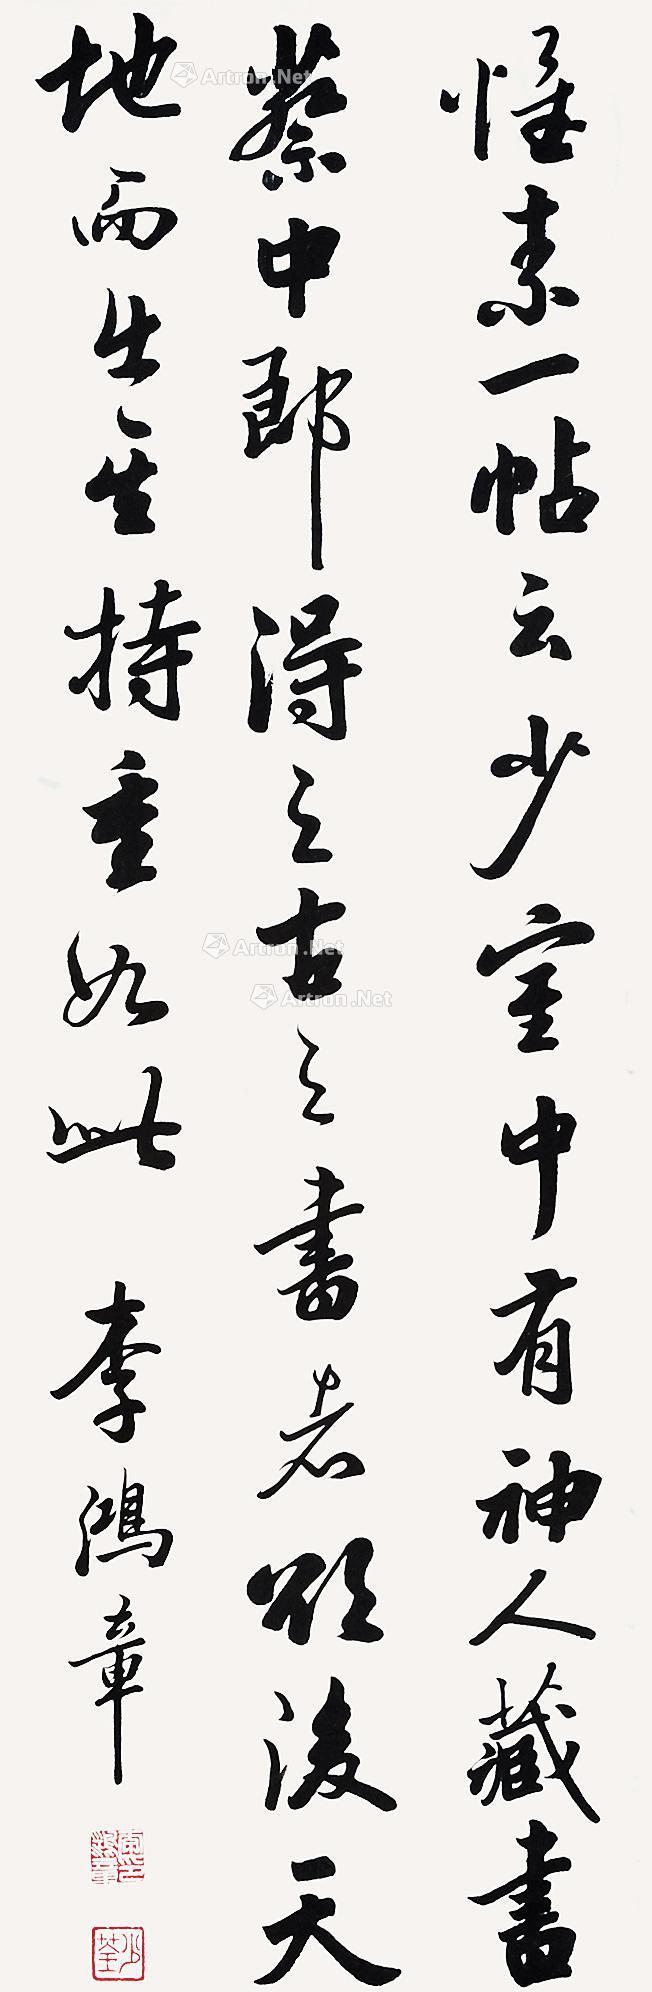 怪素一帖云少室中有神人藏書
蔡中郎得之古之書者欲後天
地而生其持重如此 李鴻章
少荃
Artron.Net
Artron.Net
Artron.Net